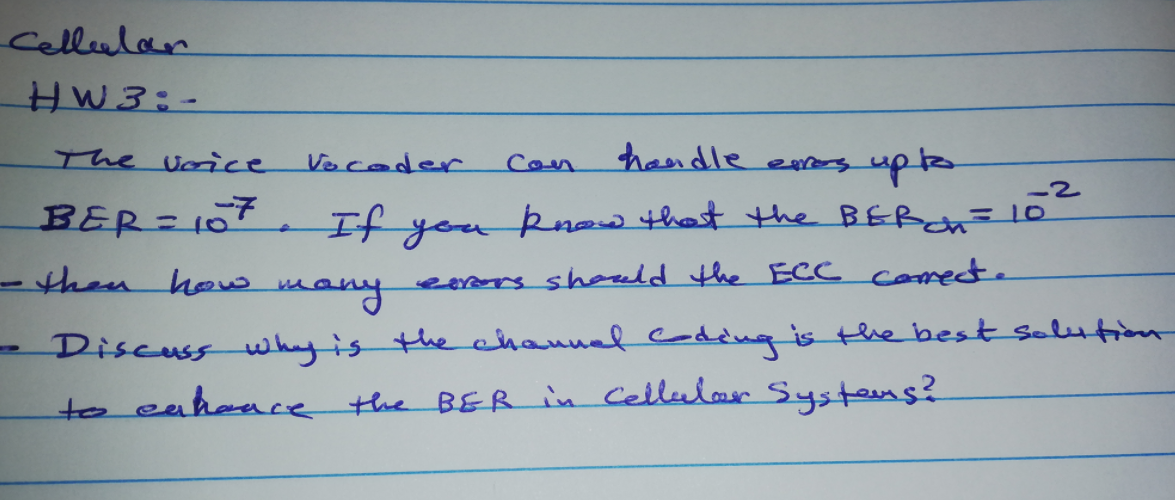 Cellular
HW3:-
The voice Vocoder can handle errors up to
BER = 10^-7. If you know that the BER_ch = 10^-2
- then how many errors should the ECC correct.
- Discuss why is the channel coding is the best solution
to enhance the BER in Cellular Systems?